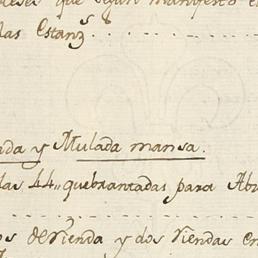 que segun manifesto e
las Estanz.s
ada y Mulada mansa.
las 44,, quebrantadas para Abr
os de rienda y dos riendas en